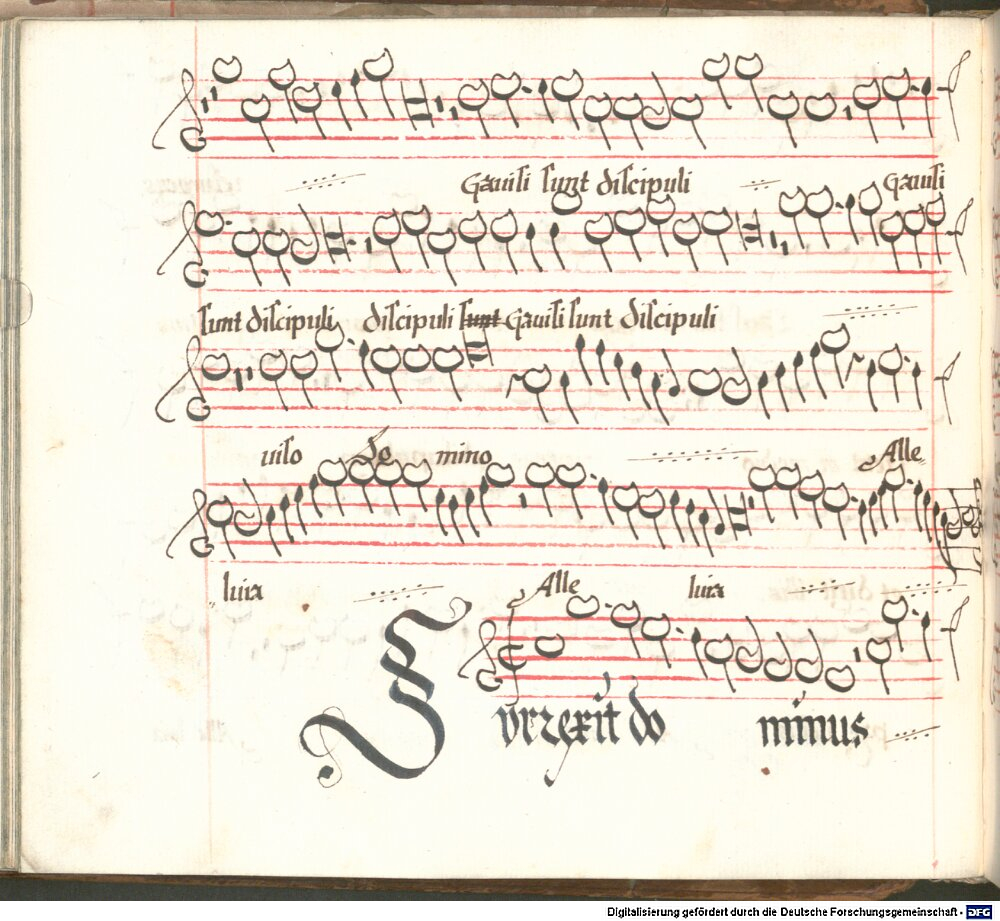 Gauisi sunt discipuli Gauisi
sunt discipuli discipuli sunt Gauisi sunt discipuli
uiso do mino Alle
luia Alle luia
Surrexit do minus
Digitalisierung gefördert durch die Deutsche Forschungsgemeinschaft - DFG